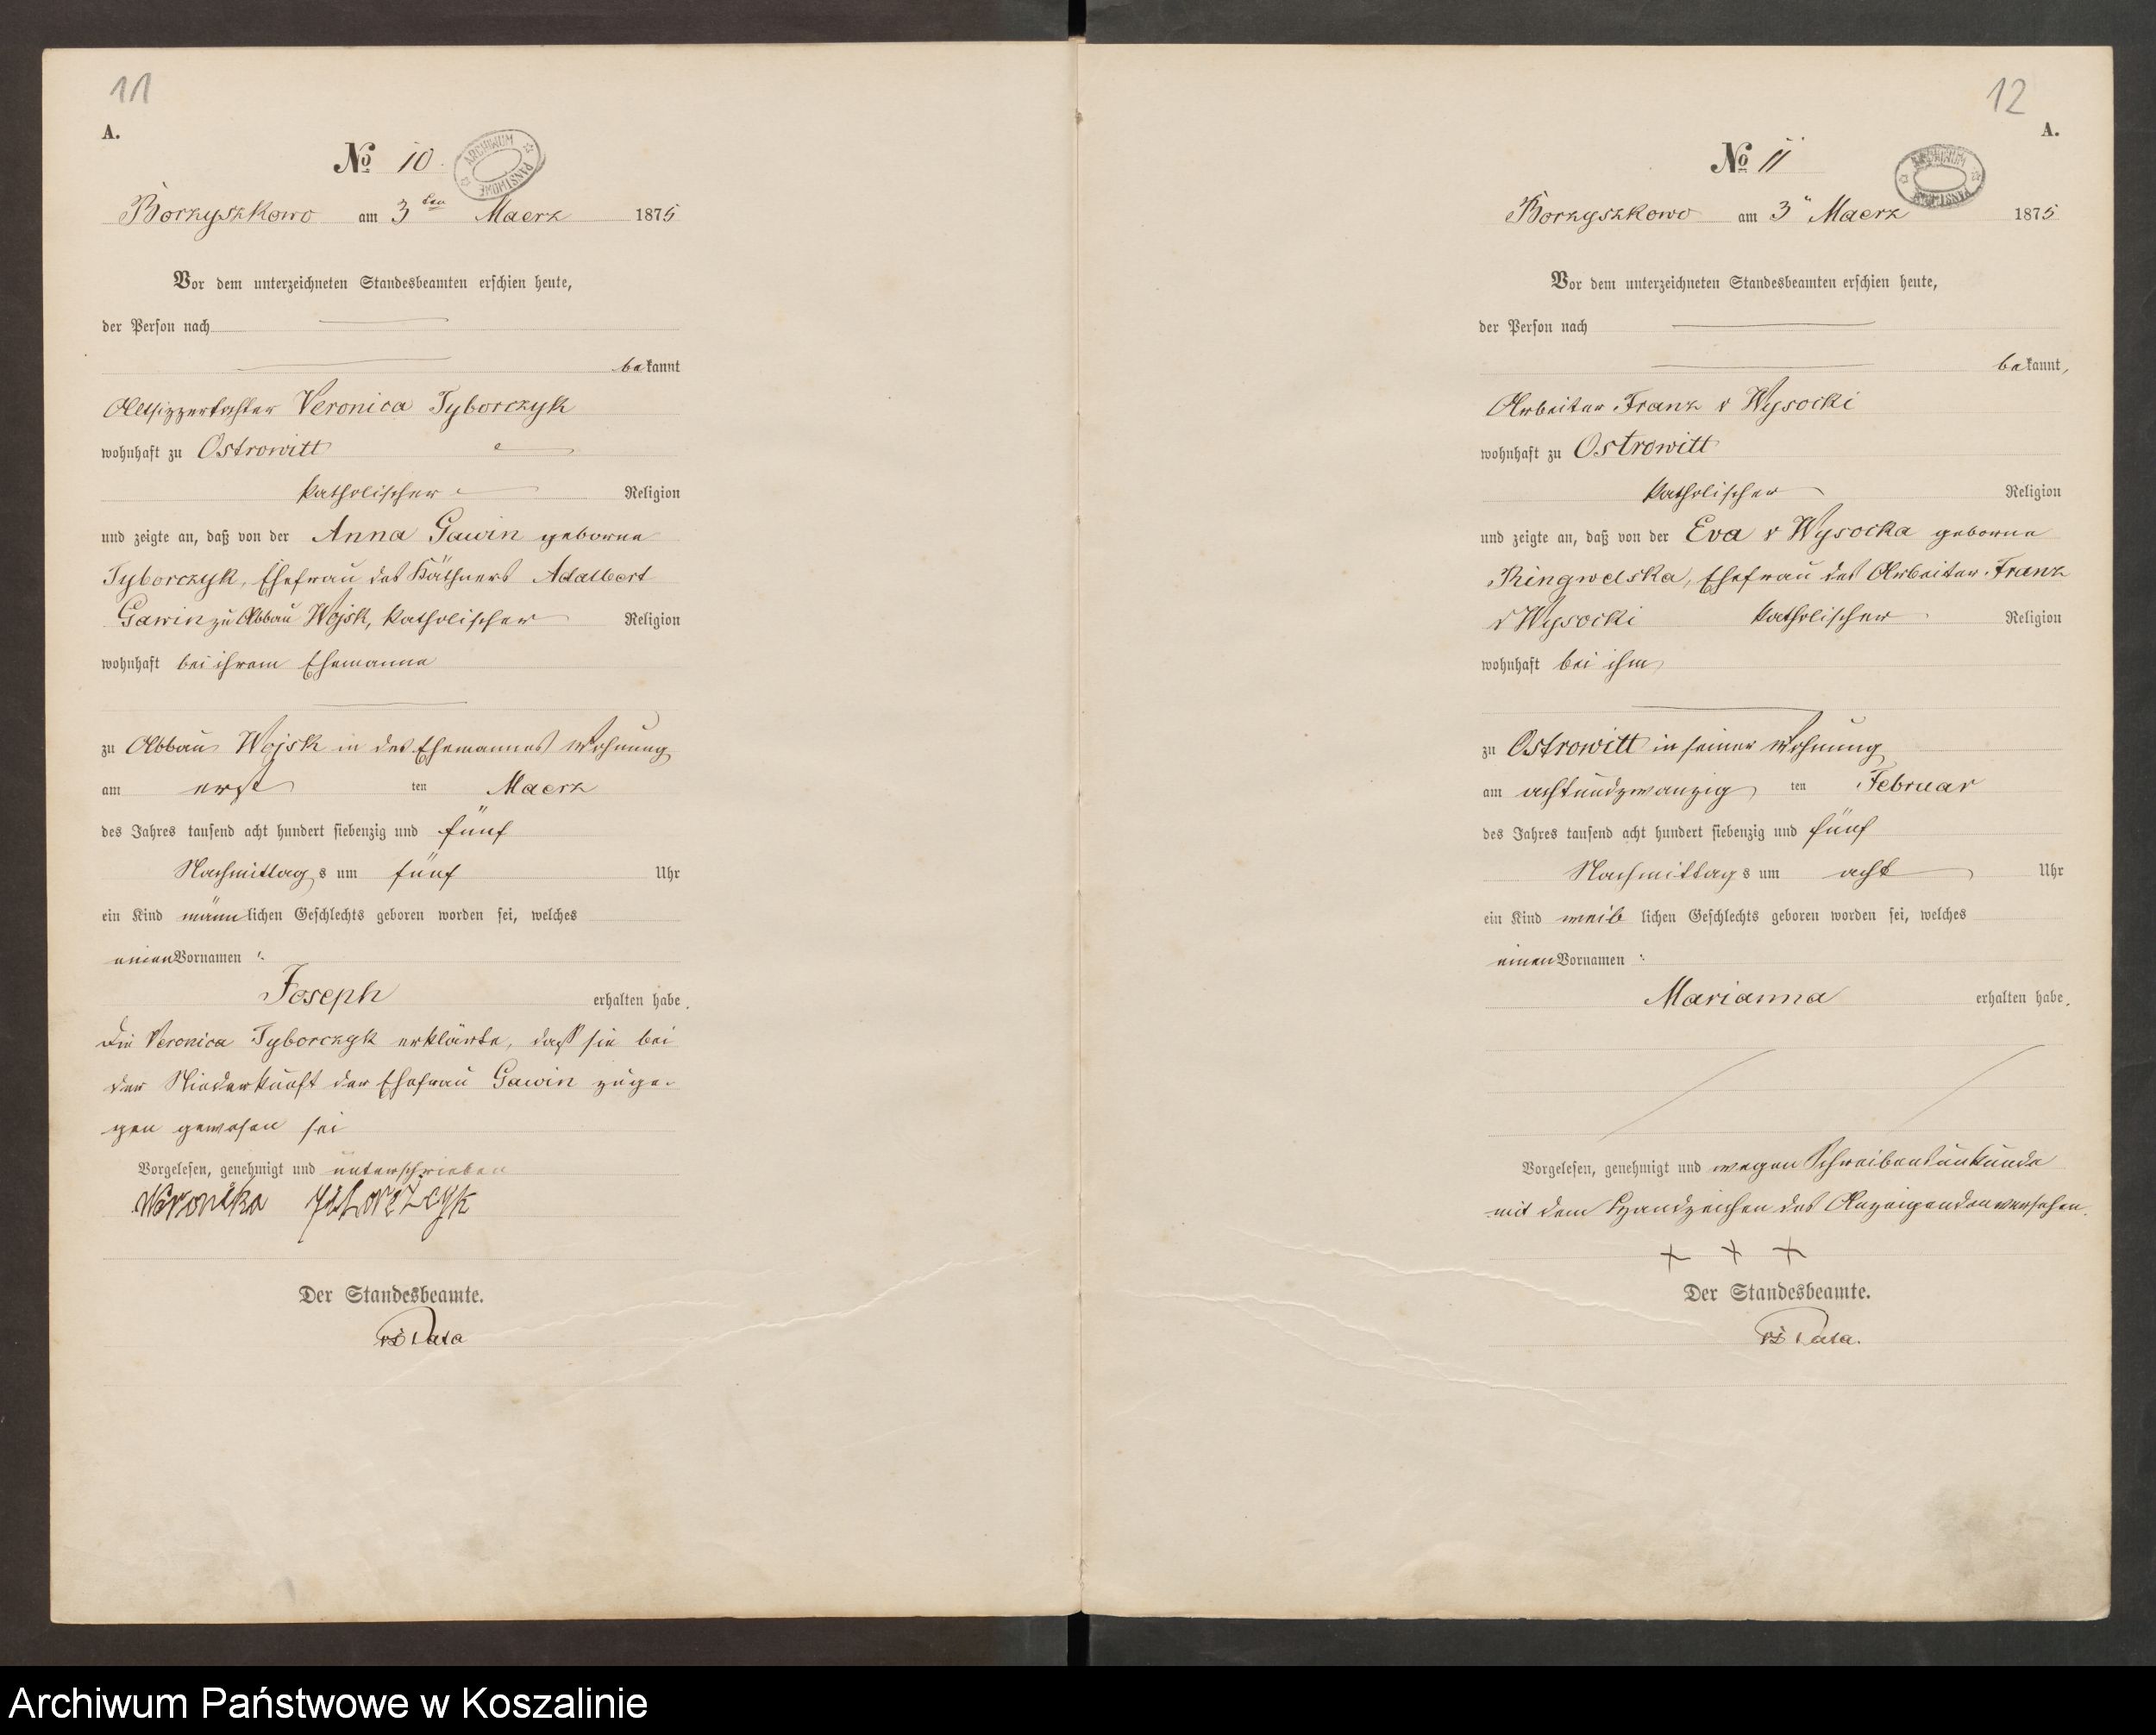 11
A.
No 10.
ARCHIWUM PAŃSTWOWE
Borzyszkowo am 3ten Maerz 1875
Vor dem unterzeichneten Standesbeamten erschien heute,
der Person nach
bekannt
Altsitzertochter Veronica Tyborczyk
wohnhaft zu Ostrowitt
katholischer Religion
und zeigte an, daß von der Anna Gawin geborne
Tyborczyk, Ehefrau des Käthners Adalbert
Gawin zu Abbau Wojsk, katholischer Religion
wohnhaft bei ihrem Ehemanne
zu Abbau Wojsk in des Ehemannes Wohnung
am erst ten Maerz
des Jahres tausend acht hundert siebenzig und fünf
Nachmittags um fünf Uhr
ein Kind männlichen Geschlechts geboren worden sei, welches
einen Vornamen :
Joseph erhalten habe.
Die Veronica Tyborczyk erklärte, daß sie bei
der Niederkunft der Ehefrau Gawin zuge-
gen gewesen sei
Vorgelesen, genehmigt und unterschrieben
Der Standesbeamte.
12
A.
No 11
ARCHIWUM PAŃSTWOWE
Borzyszkowo am 3" Maerz 1875
Vor dem unterzeichneten Standesbeamten erschien heute,
der Person nach
bekannt,
Arbeiter Franz v Wysocki
wohnhaft zu Ostrowitt
katholischer Religion
und zeigte an, daß von der Eva v Wysocka geborne
Ringwelska, Ehefrau des Arbeiter Franz
v Wysocki katholischer Religion
wohnhaft bei ihm
zu Ostrowitt in seiner Wohnung
am achtundzwanzig ten Februar
des Jahres tausend acht hundert siebenzig und fünf
Nachmittags um acht Uhr
ein Kind weiblichen Geschlechts geboren worden sei, welches
einen Vornamen :
Marianna erhalten habe.
Vorgelesen, genehmigt und wegen Schreibensunkunde
mit dem Handzeichen des Anzeigenden versehen.
+ + +
Der Standesbeamte.
Archiwum Państwowe w Koszalinie